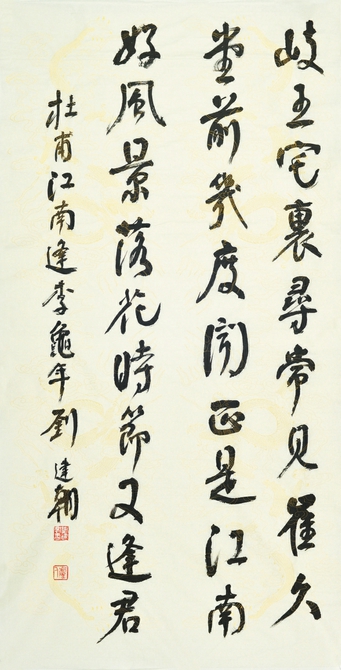 岐王宅裏尋常見崔久
堂前幾度聞正是江南
好風景落花時節又逢君
杜甫江南逢李龜年劉建朝